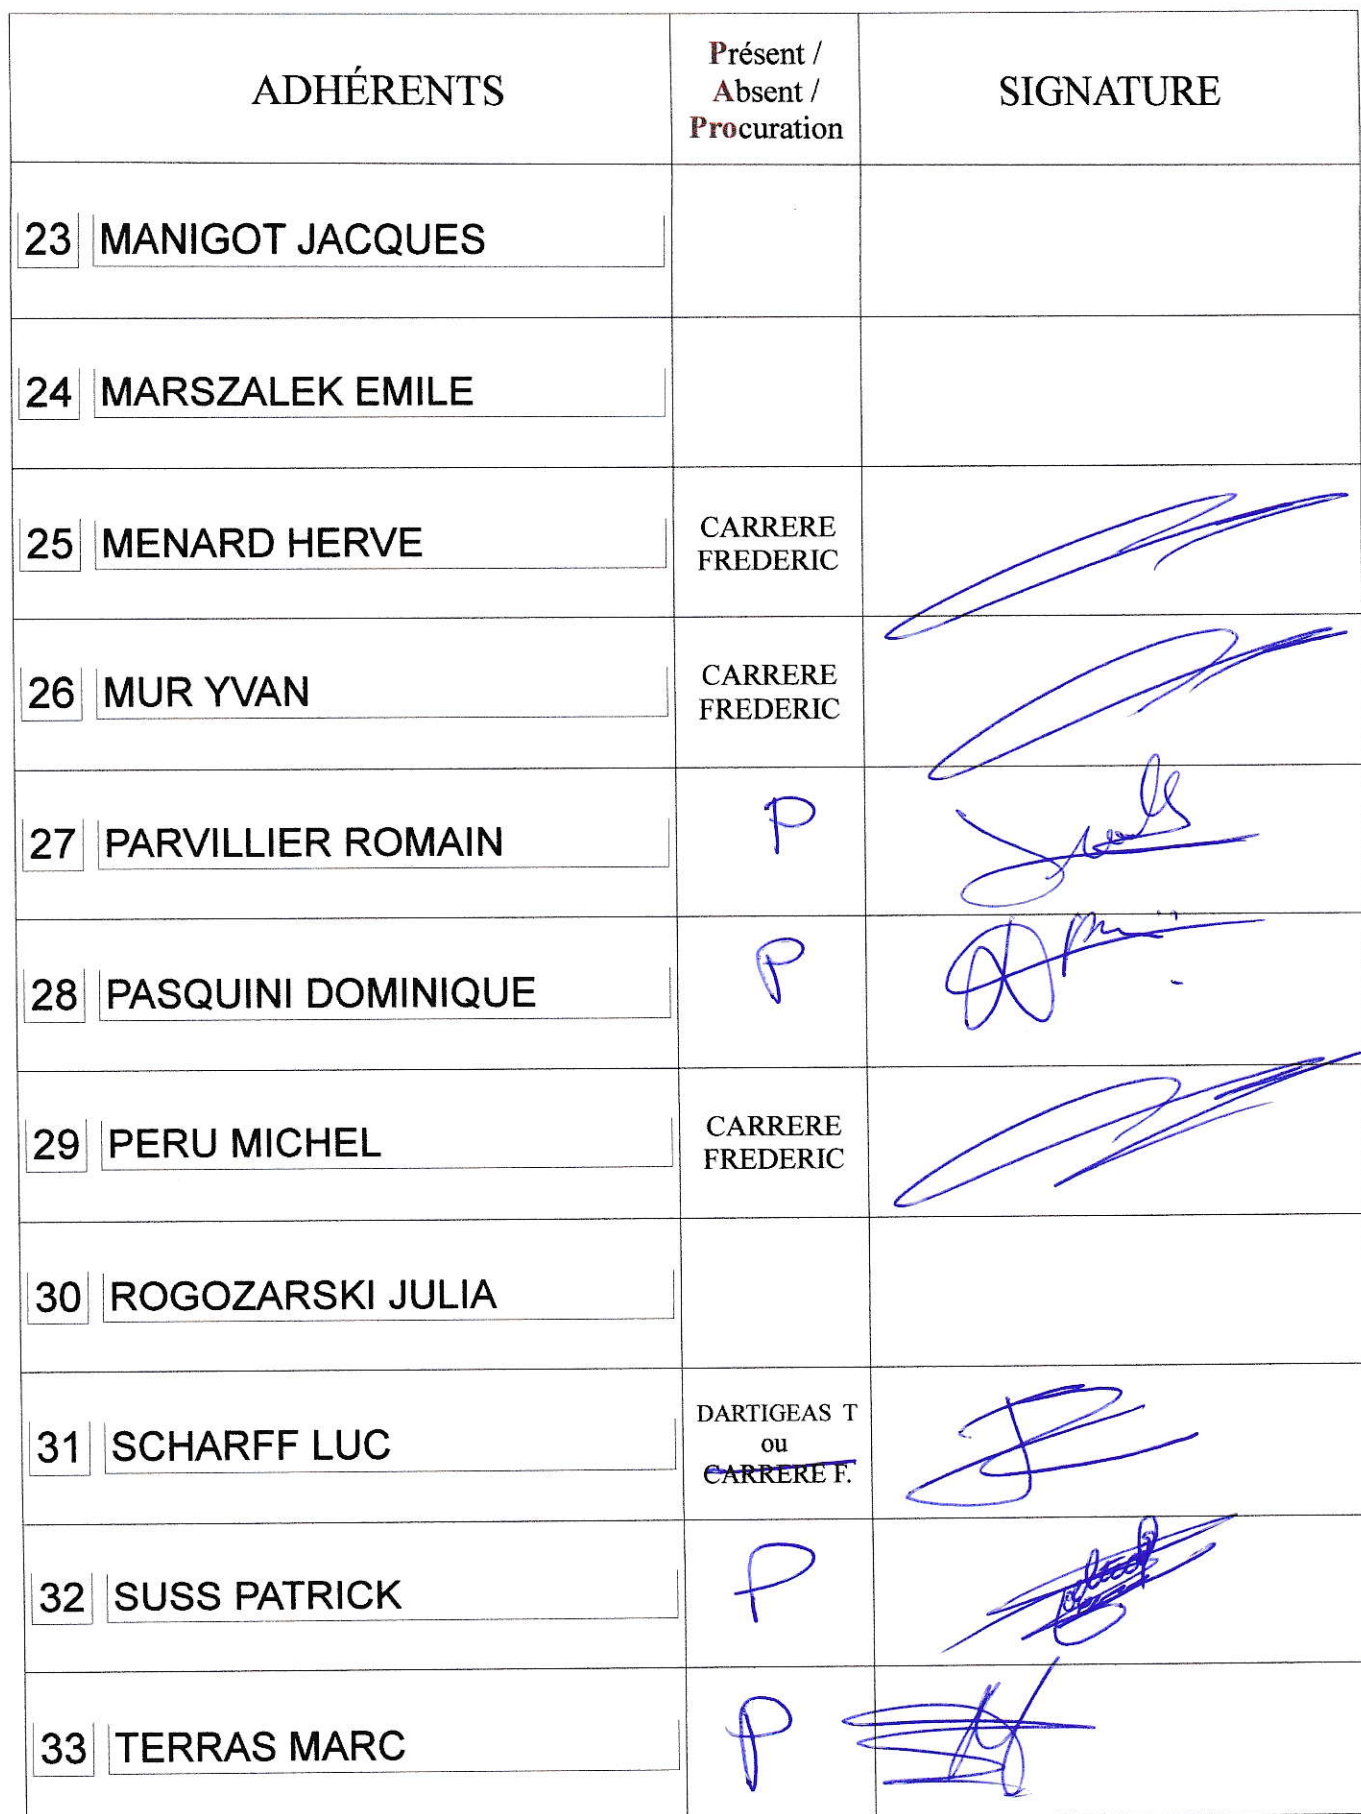 ADHÉRENTS
Présent /
Absent /
Procuration
SIGNATURE
23 MANIGOT JACQUES
24 MARSZALEK EMILE
25 MENARD HERVE
CARRERE
FREDERIC
26 MUR YVAN
CARRERE
FREDERIC
27 PARVILLIER ROMAIN P
28 PASQUINI DOMINIQUE P
29 PERU MICHEL
CARRERE
FREDERIC
30 ROGOZARSKI JULIA
31 SCHARFF LUC
DARTIGEAS T
ou
CARRERE F.
32 SUSS PATRICK P
33 TERRAS MARC P